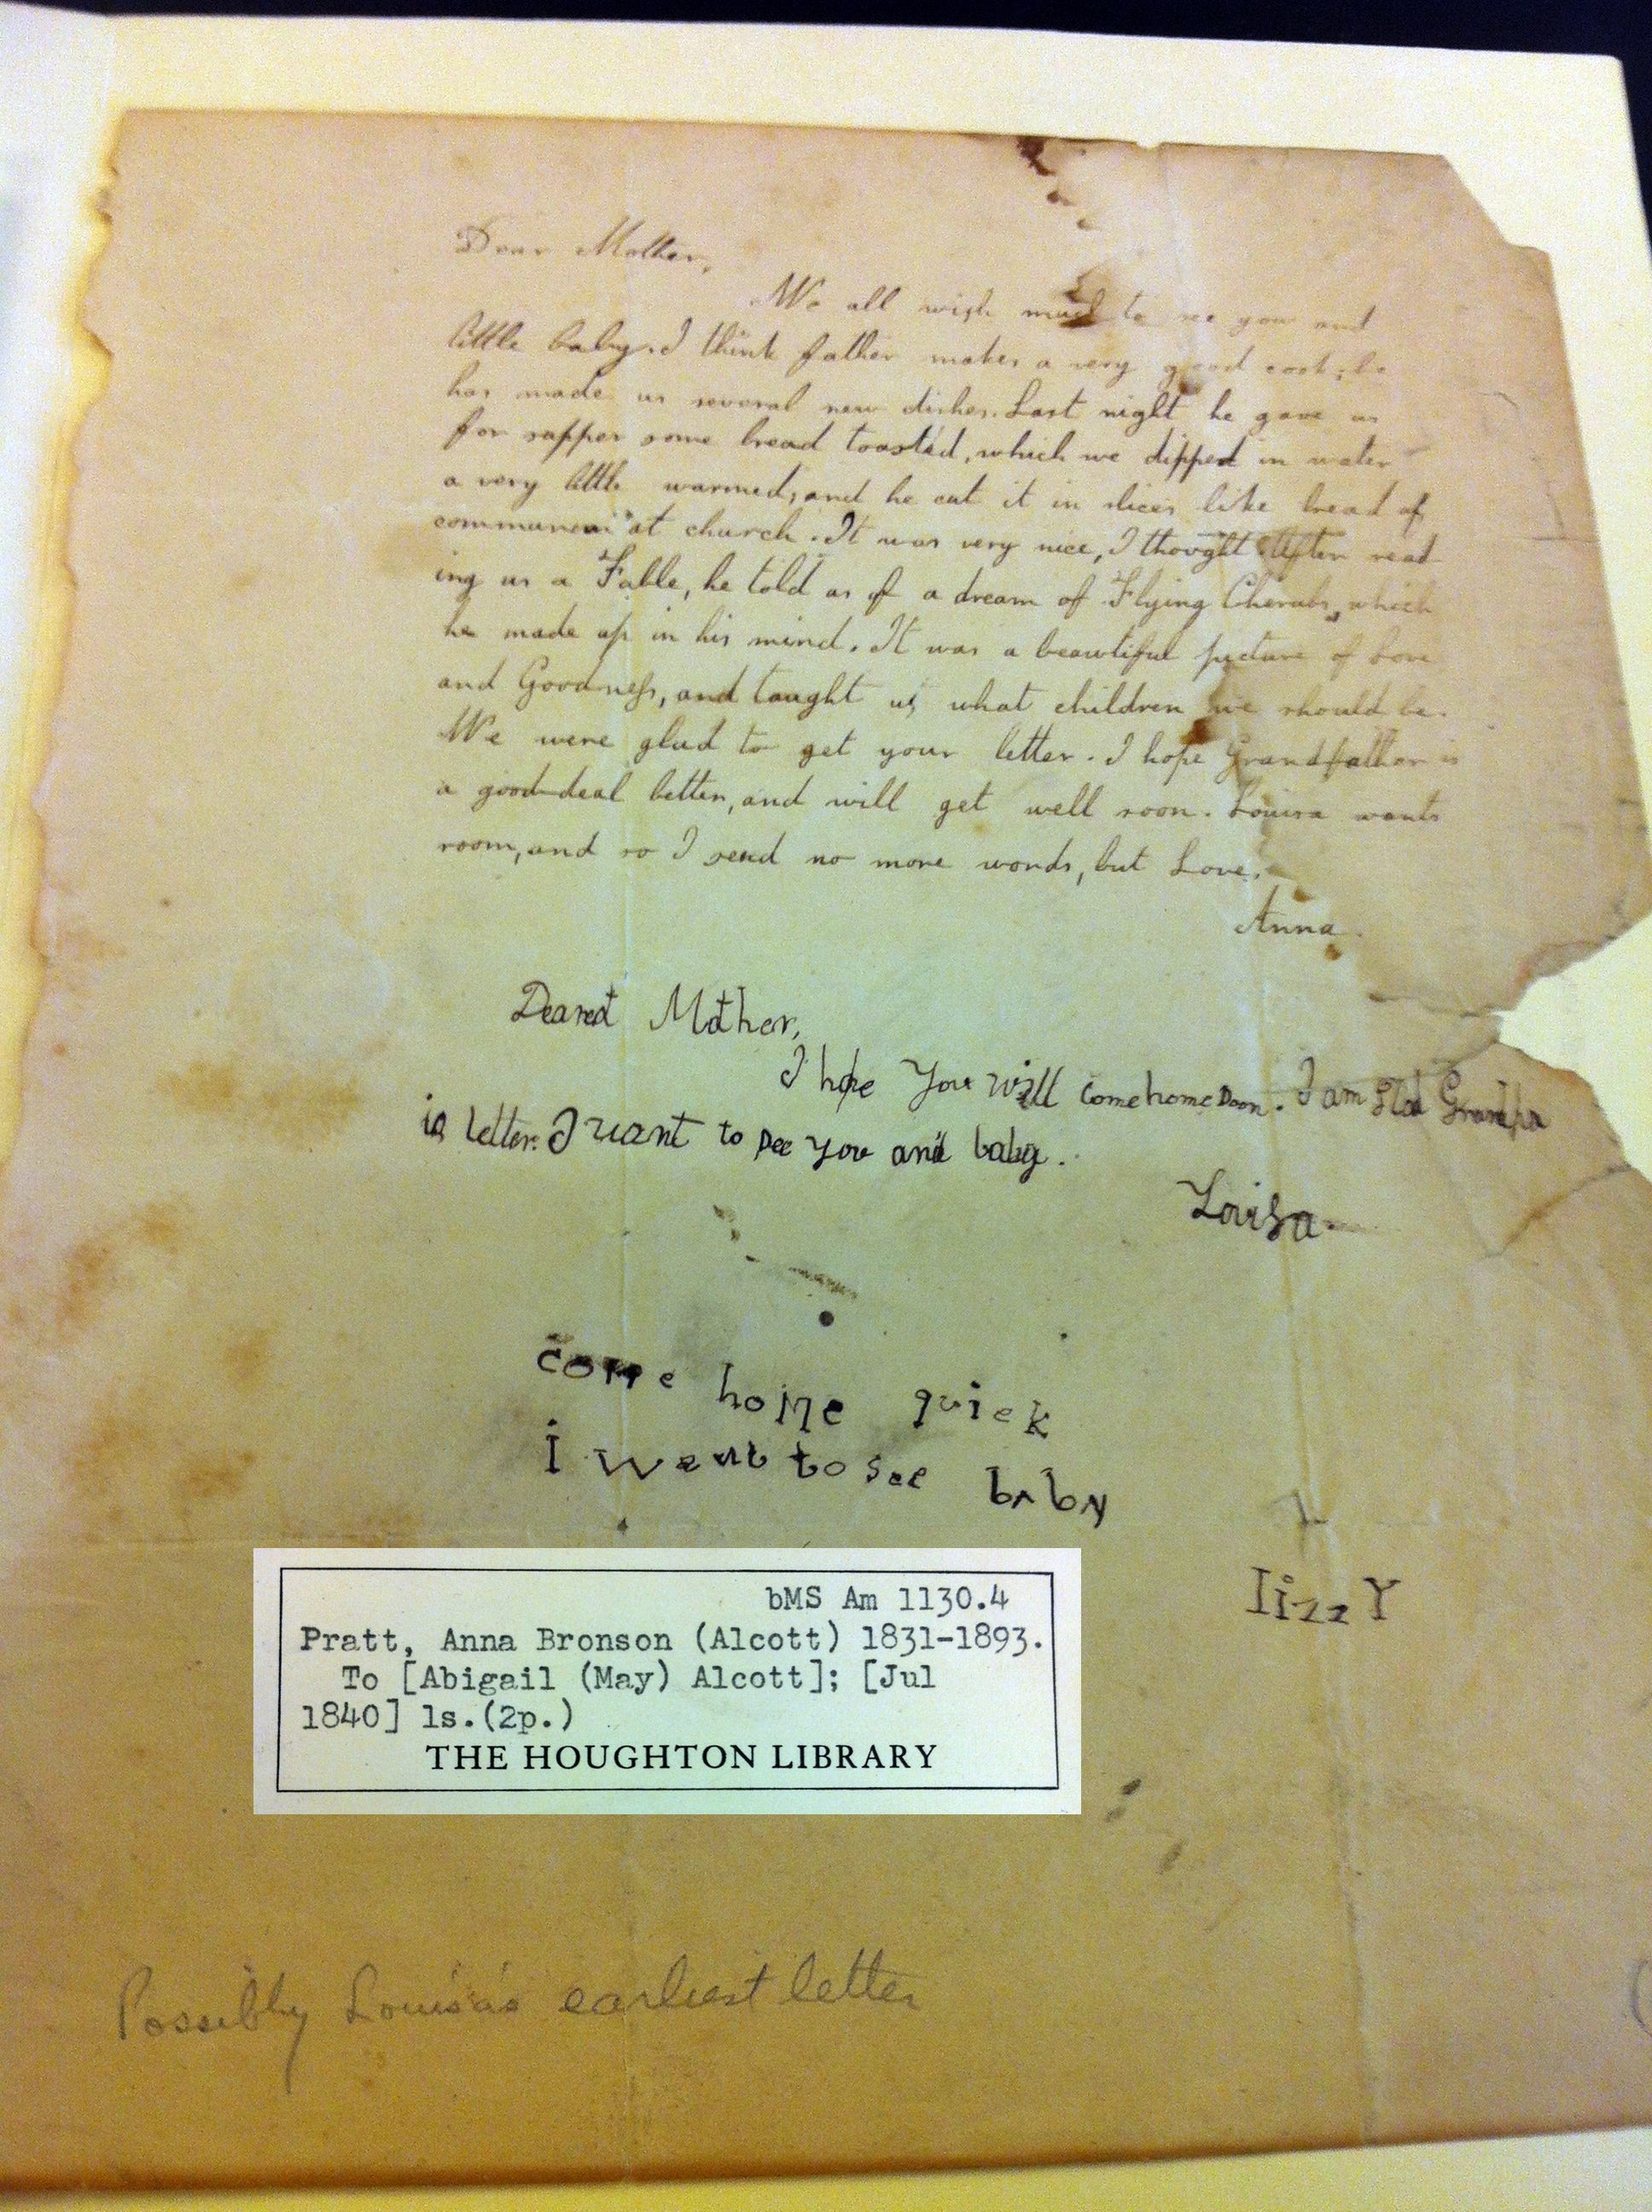 Dear Mother,
We all wish much to see you and
little baby. I think father makes a very good cook; he
has made us several new dishes. Last night he gave us
for supper some bread toasted, which we dipped in water
a very little warmed, and he cut it in slices like bread of
at church. It was very nice, I thought. After read
ing us a Fable, he told us of a dream of Flying Cherubs, which
he made up in his mind. It was a beautiful picture of Love
and Goodness, and taught us what children we should be.
We were glad to get your letter. I hope Grandfather is
a good-deal better, and will get well soon. Louisa wants
room, and so I send no more words, but Love.
Anna.
Dearest Mother,
I hope You will come home soon. I am glad Grandpa
is better. I want to see you and baby.
Louisa
come home quick
I want to see baby
lizzY
bMS Am 1130.4
Pratt, Anna Bronson (Alcott) 1831-1893.
To [Abigail (May) Alcott]; [Jul
1840] 1s.(2p.)
THE HOUGHTON LIBRARY
Possibly Louisa's earliest letter